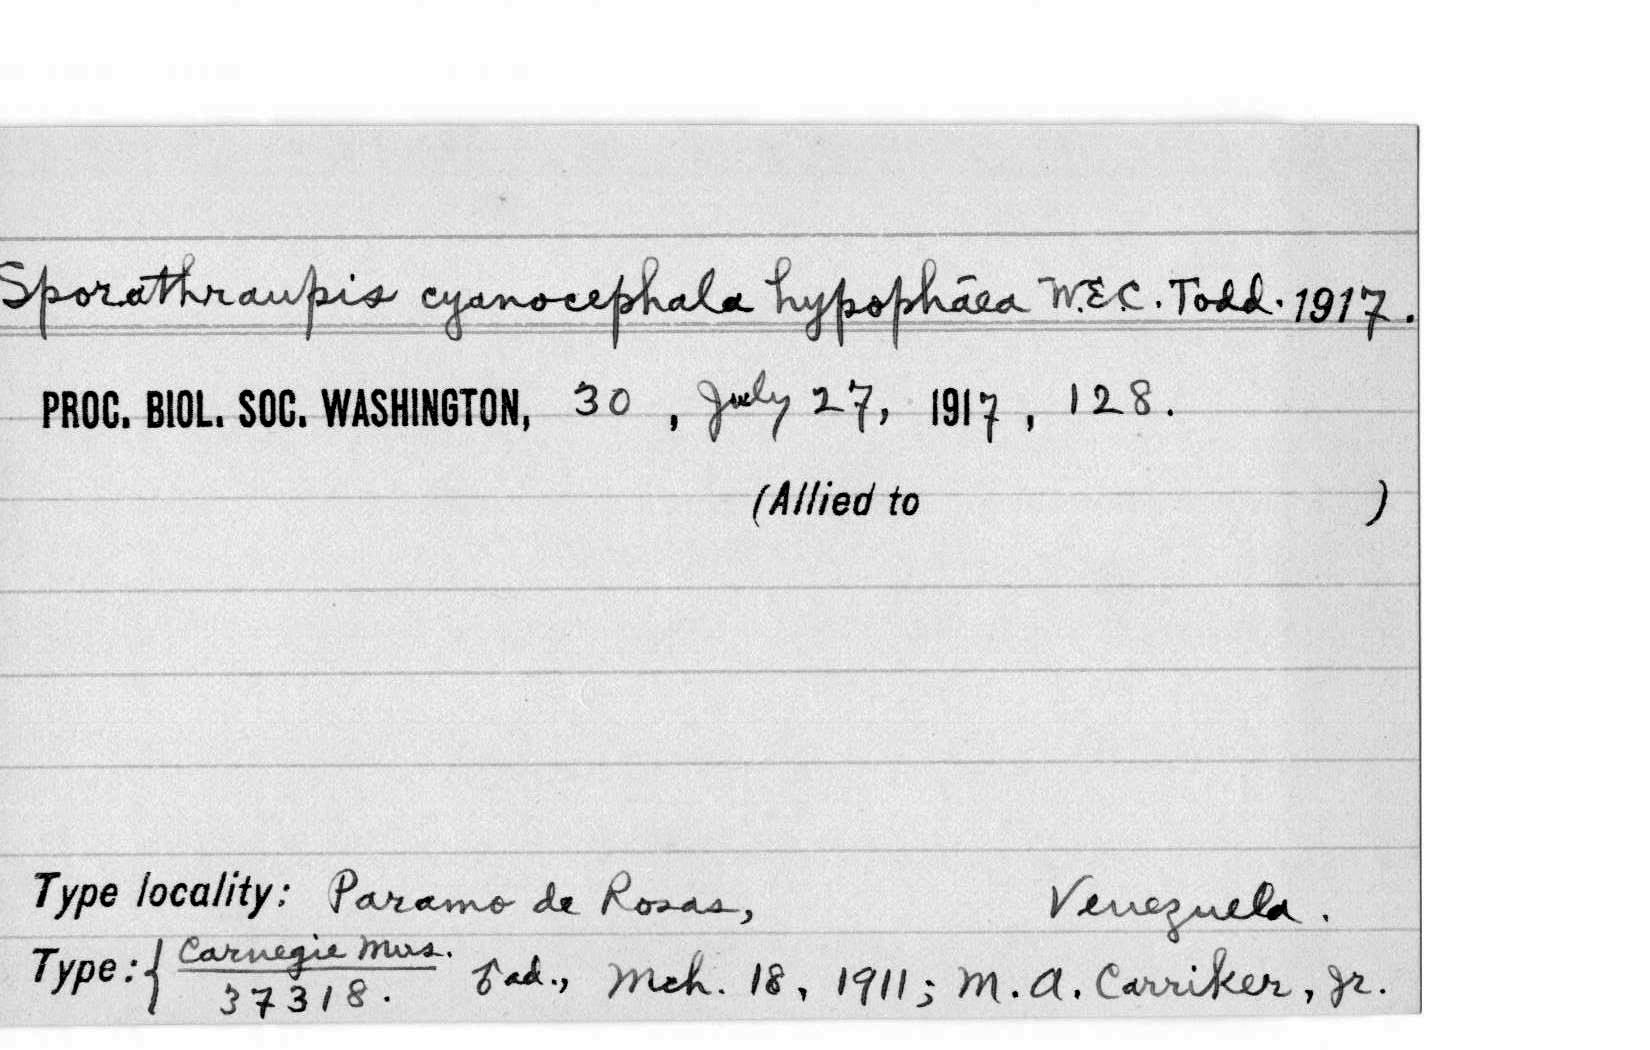 Sporathraupis cyanocephala hypophæa W.E.C. Todd. 1917.
PROC. BIOL. SOC. WASHINGTON, 30, July 27, 1917, 128.
(Allied to )
Type locality: Paramo de Rosas, Venezuela.
Type: { Carnegie Mus.
37318. ♂ ad., Mch. 18, 1911; M. A. Carriker, Jr.